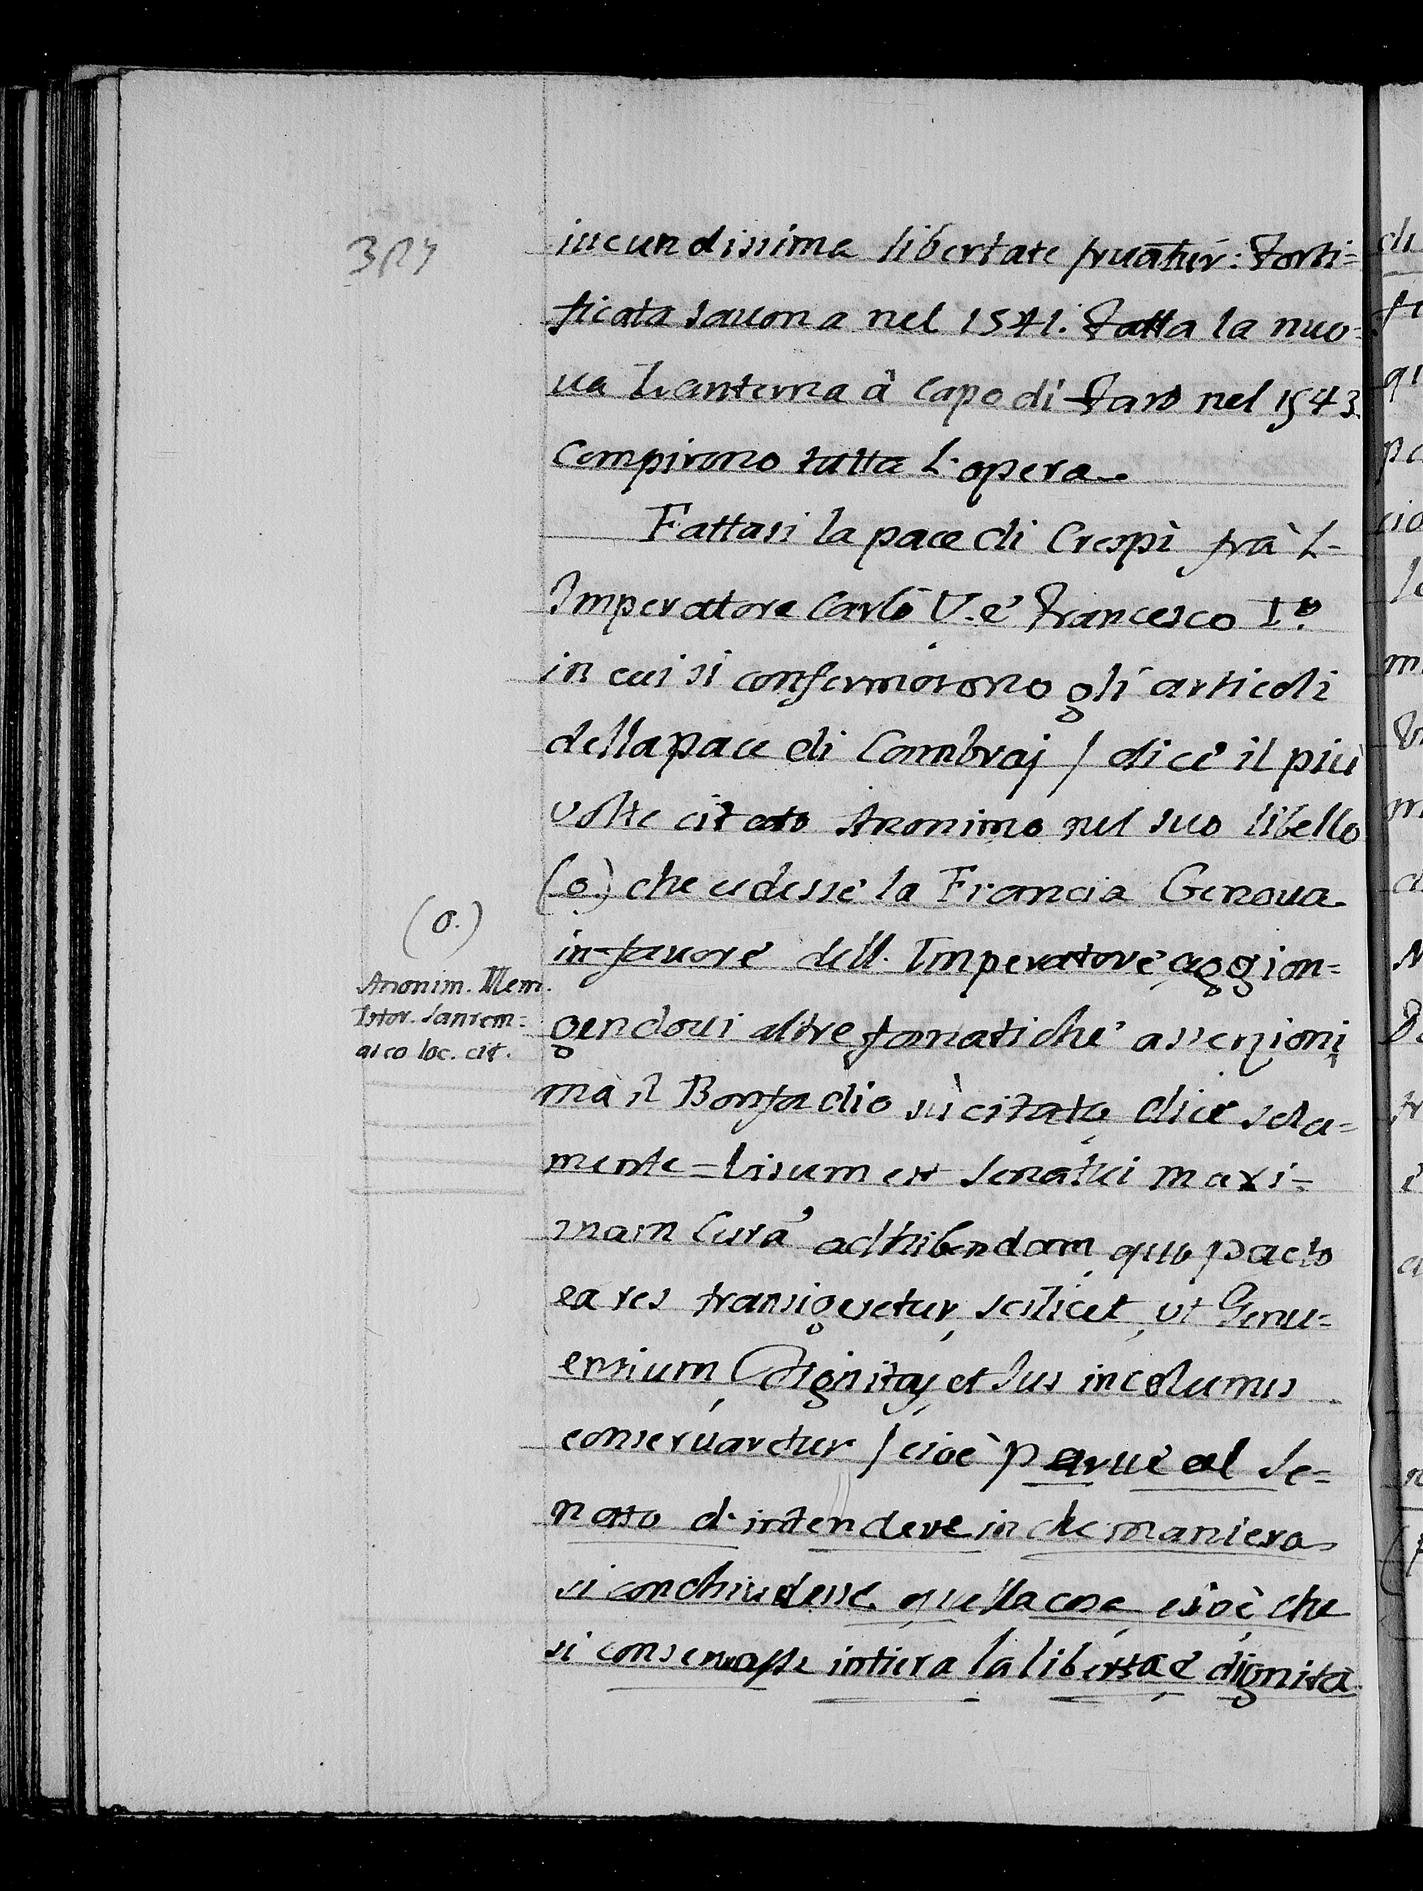 iucundissima libertate fruatur: Forti=
ficata Sauona nel 1541. Fatta la nuo=
ua Lanterna à Capo di Faro nel 1543.
Compirono tutta l'opera.
Fattasi la pace di Crespì frà l'
Imperatore Carlo V. e Francesco I.º
in cui si confermorono gli articoli
della pace di Cambraj / dice il più
volte citato Anonimo nel suo libello
(o) che cedesse la Francia Genoua
in fauore dell' Imperatore, aggion=
gendoui altre fanatiche asserzioni,
mà il Bonfadio sù citato, dice sola=
mente = Visum est Senatui maxi=
mam Curã adhibendam, quo pacto
ea res transigeretur, scilicet, ut Genu=
ensium, Dignitas, et Ius incolumis
conseruaretur / cioè parue al Se=
nato d'intendere in che maniera
si conchiudesse, quella cosa, cioè, che
si conseruasse intiera la libertà, e dignità
(o.)
Anonim. Mem.
Istor. Sanrem=
asco loc. cit.